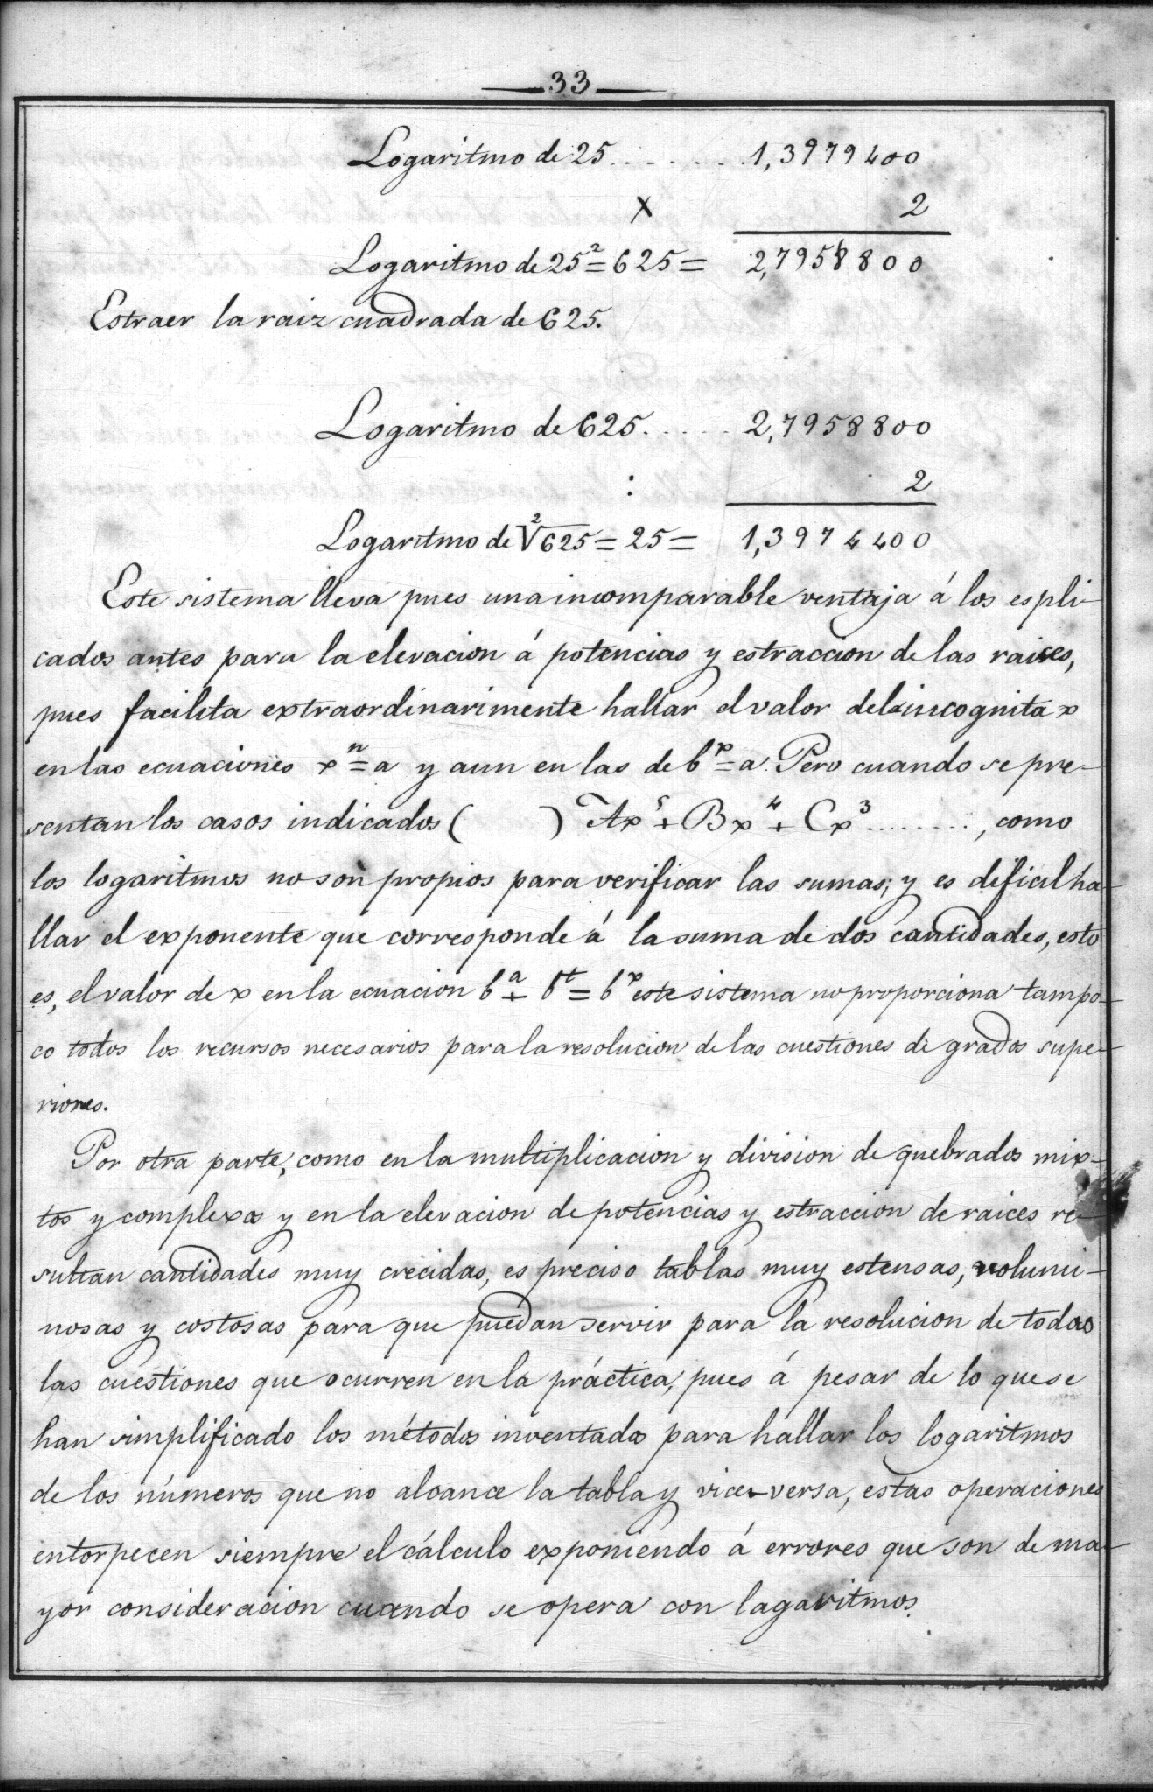 33
Logaritmo de 25........1,3979400
x 2
Logaritmo de 25²=625= 2,7958800
Estraer la raiz cuadrada de 625.
Logaritmo de 625......2,7958800
: 2
Logaritmo de ²√625=25= 1,3974400
Este sistema lleva pues una incomparable ventaja á los espli-
cados antes para la elevacion á potencias y estraccion de las raices,
pues facilita extraordinarimente hallar el valor dela incognita x
en las ecuaciones xⁿ=a y aun en las de bˣ=a. Pero cuando se pre-
sentan los casos indicados ( ) Ax⁵+Bx⁴+Cx³........, como
los logaritmos no son propios para verificar las sumas; y es dificil ha-
llar el exponente que corresponde á la suma de dos cantidades, esto
es, el valor de x en la ecuacion bᵃ+bᵗ=bˣ este sistema no proporciona tampo-
co todos los recursos necesarios para la resolucion de las cuestiones de grados supe-
riores.
Por otra parte, como en la multiplicacion y division de quebrados mix-
tos y complexos y en la elevacion de potencias y estraccion de raices re-
sultan cantidades muy crecidas, es preciso tablas muy estensas, volumi-
nosas y costosas para que puedan servir para la resolucion de todas
las cuestiones que ocurren en la práctica; pues á pesar de lo que se
han simplificado los métodos inventados para hallar los logaritmos
de los números que no alcance la tabla y vice-versa, estas operaciones
entorpecen siempre el cálculo exponiendo á errores que son de ma-
yor consideracion cuando se opera con lagaritmos.